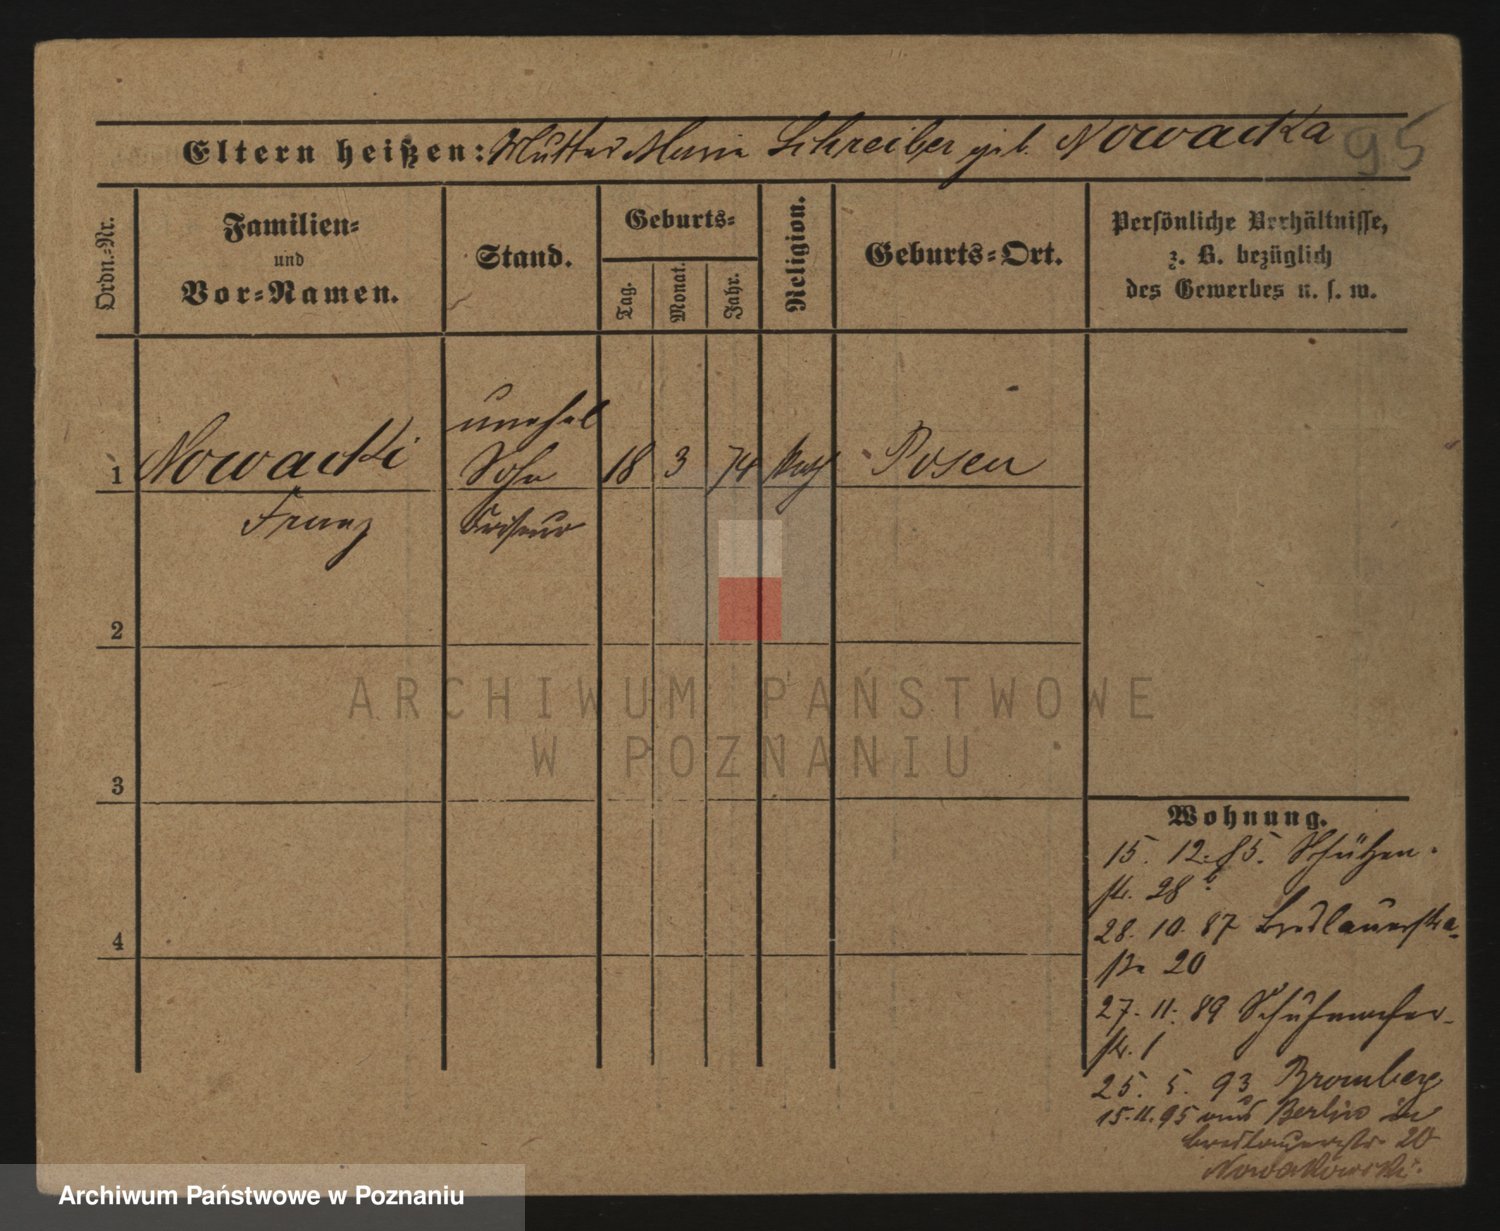 95
Eltern heißen: Mutter Marie Schreiber geb. Nowacka
Ordn.=Nr.
Familien=
und
Vor=Namen.
Stand.
Geburts=
Tag.
Monat.
Jahr.
Religion.
Geburts=Ort.
Persönliche Verhältnisse,
z. B. bezüglich
des Gewerbes u. s. w.
unehel
1 Nowacki Sohn 18 3 74 kath Posen
Franz Friseur
2
3
4
ARCHIWUM PAŃSTWOWE
W POZNANIU
Wohnung.
15. 12. 85. Schützen-
str. 28b
28. 10. 87 Breslauerstra-
ße 20
27. 11. 89 Schuhmacher-
str. 1
25. 5. 93 Bromberg
15.11.95 aus Berlin in
Breslauerstr. 20
Nowakowski.
Archiwum Państwowe w Poznaniu